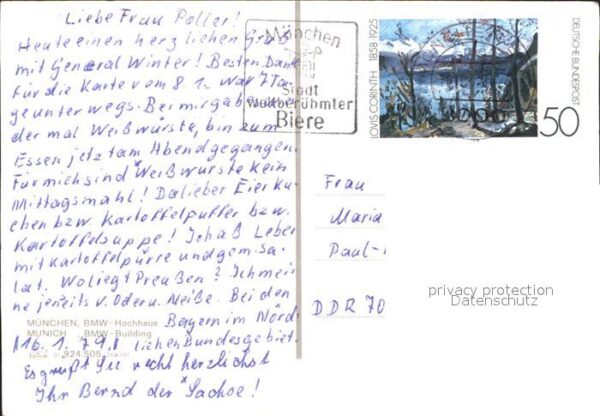 Liebe Frau Poller!
Heute einen herzlichen Gruß
mit General Winter! Besten Dank
für die Karte vom 8.1. war 7 Ta-
ge unterwegs. Bei mir gab's wie-
der mal Weißwürste, bin zum
Essen jetzt am Abend gegangen.
Für mich sind Weißwürste kein
Mittagsmahl! Da lieber Eierku-
chen bzw. Kartoffelpuffer bzw.
Kartoffelsuppe! Ich aß Leber
mit Kartoffelpürre und gem. Sa-
lat. Wo liegt Preußen? Ich mei-
ne jenseits v. Oder u. Neiße. Bei den
Bayern im Nörd-
lichen Bundesgebiet.
16.1.79
Es grüßt Sie recht herzlichst
Ihr Bernd der "Sachse!
MÜNCHEN, BMW-Hochhaus
MUNICH BMW-Building
924 505
München
Stadt
weltberühmter
Biere
LOVIS CORINTH 1858-1925
DEUTSCHE BUNDESPOST
50
Frau
Maria
Paul-
DDR 70
privacy protection
Datenschutz